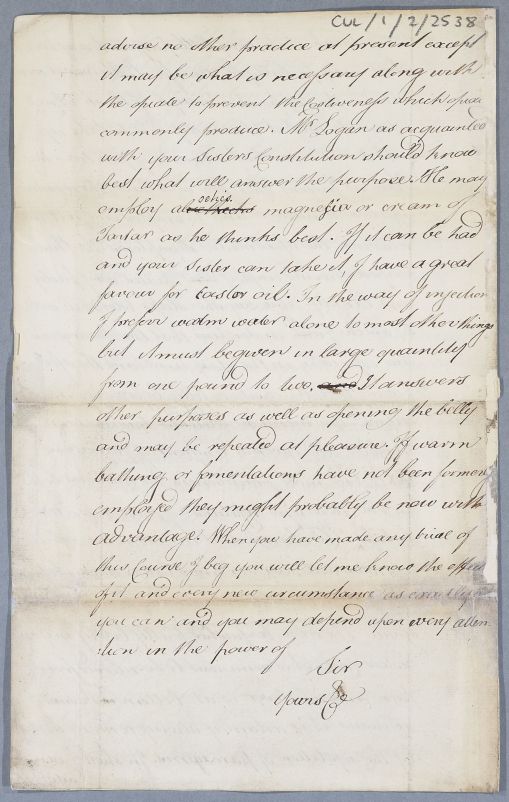 CUL/1/2/2538
advise no other practice at present except
it may be what is necessary along with
the opiate to prevent the Costiveness which opiates
commonly produce. Mr Logan as acquainted
with your Sisters Constitution should know
best what will answer the purpose. He may
employ magnesia or cream of
Tartar as he thinks best. If it can be had
and your Sister can take it, I have a great
favour for Castor oil. In the way of injection
I prefer warm water alone to most other things
but it must be given in large quantity
from one pound to two, and It answers
other purposes as well as opening the belly
and may be repeated at pleasure. If warm
bathing or fomentations have not been formerly
employed they might probably be now with
advantage. When you have made any trial of
this Course I beg you will let me know the effects
of it and every new circumstance as exactly as
you can and you may depend upon every atten
tion in the power of
Sir
Yours &c